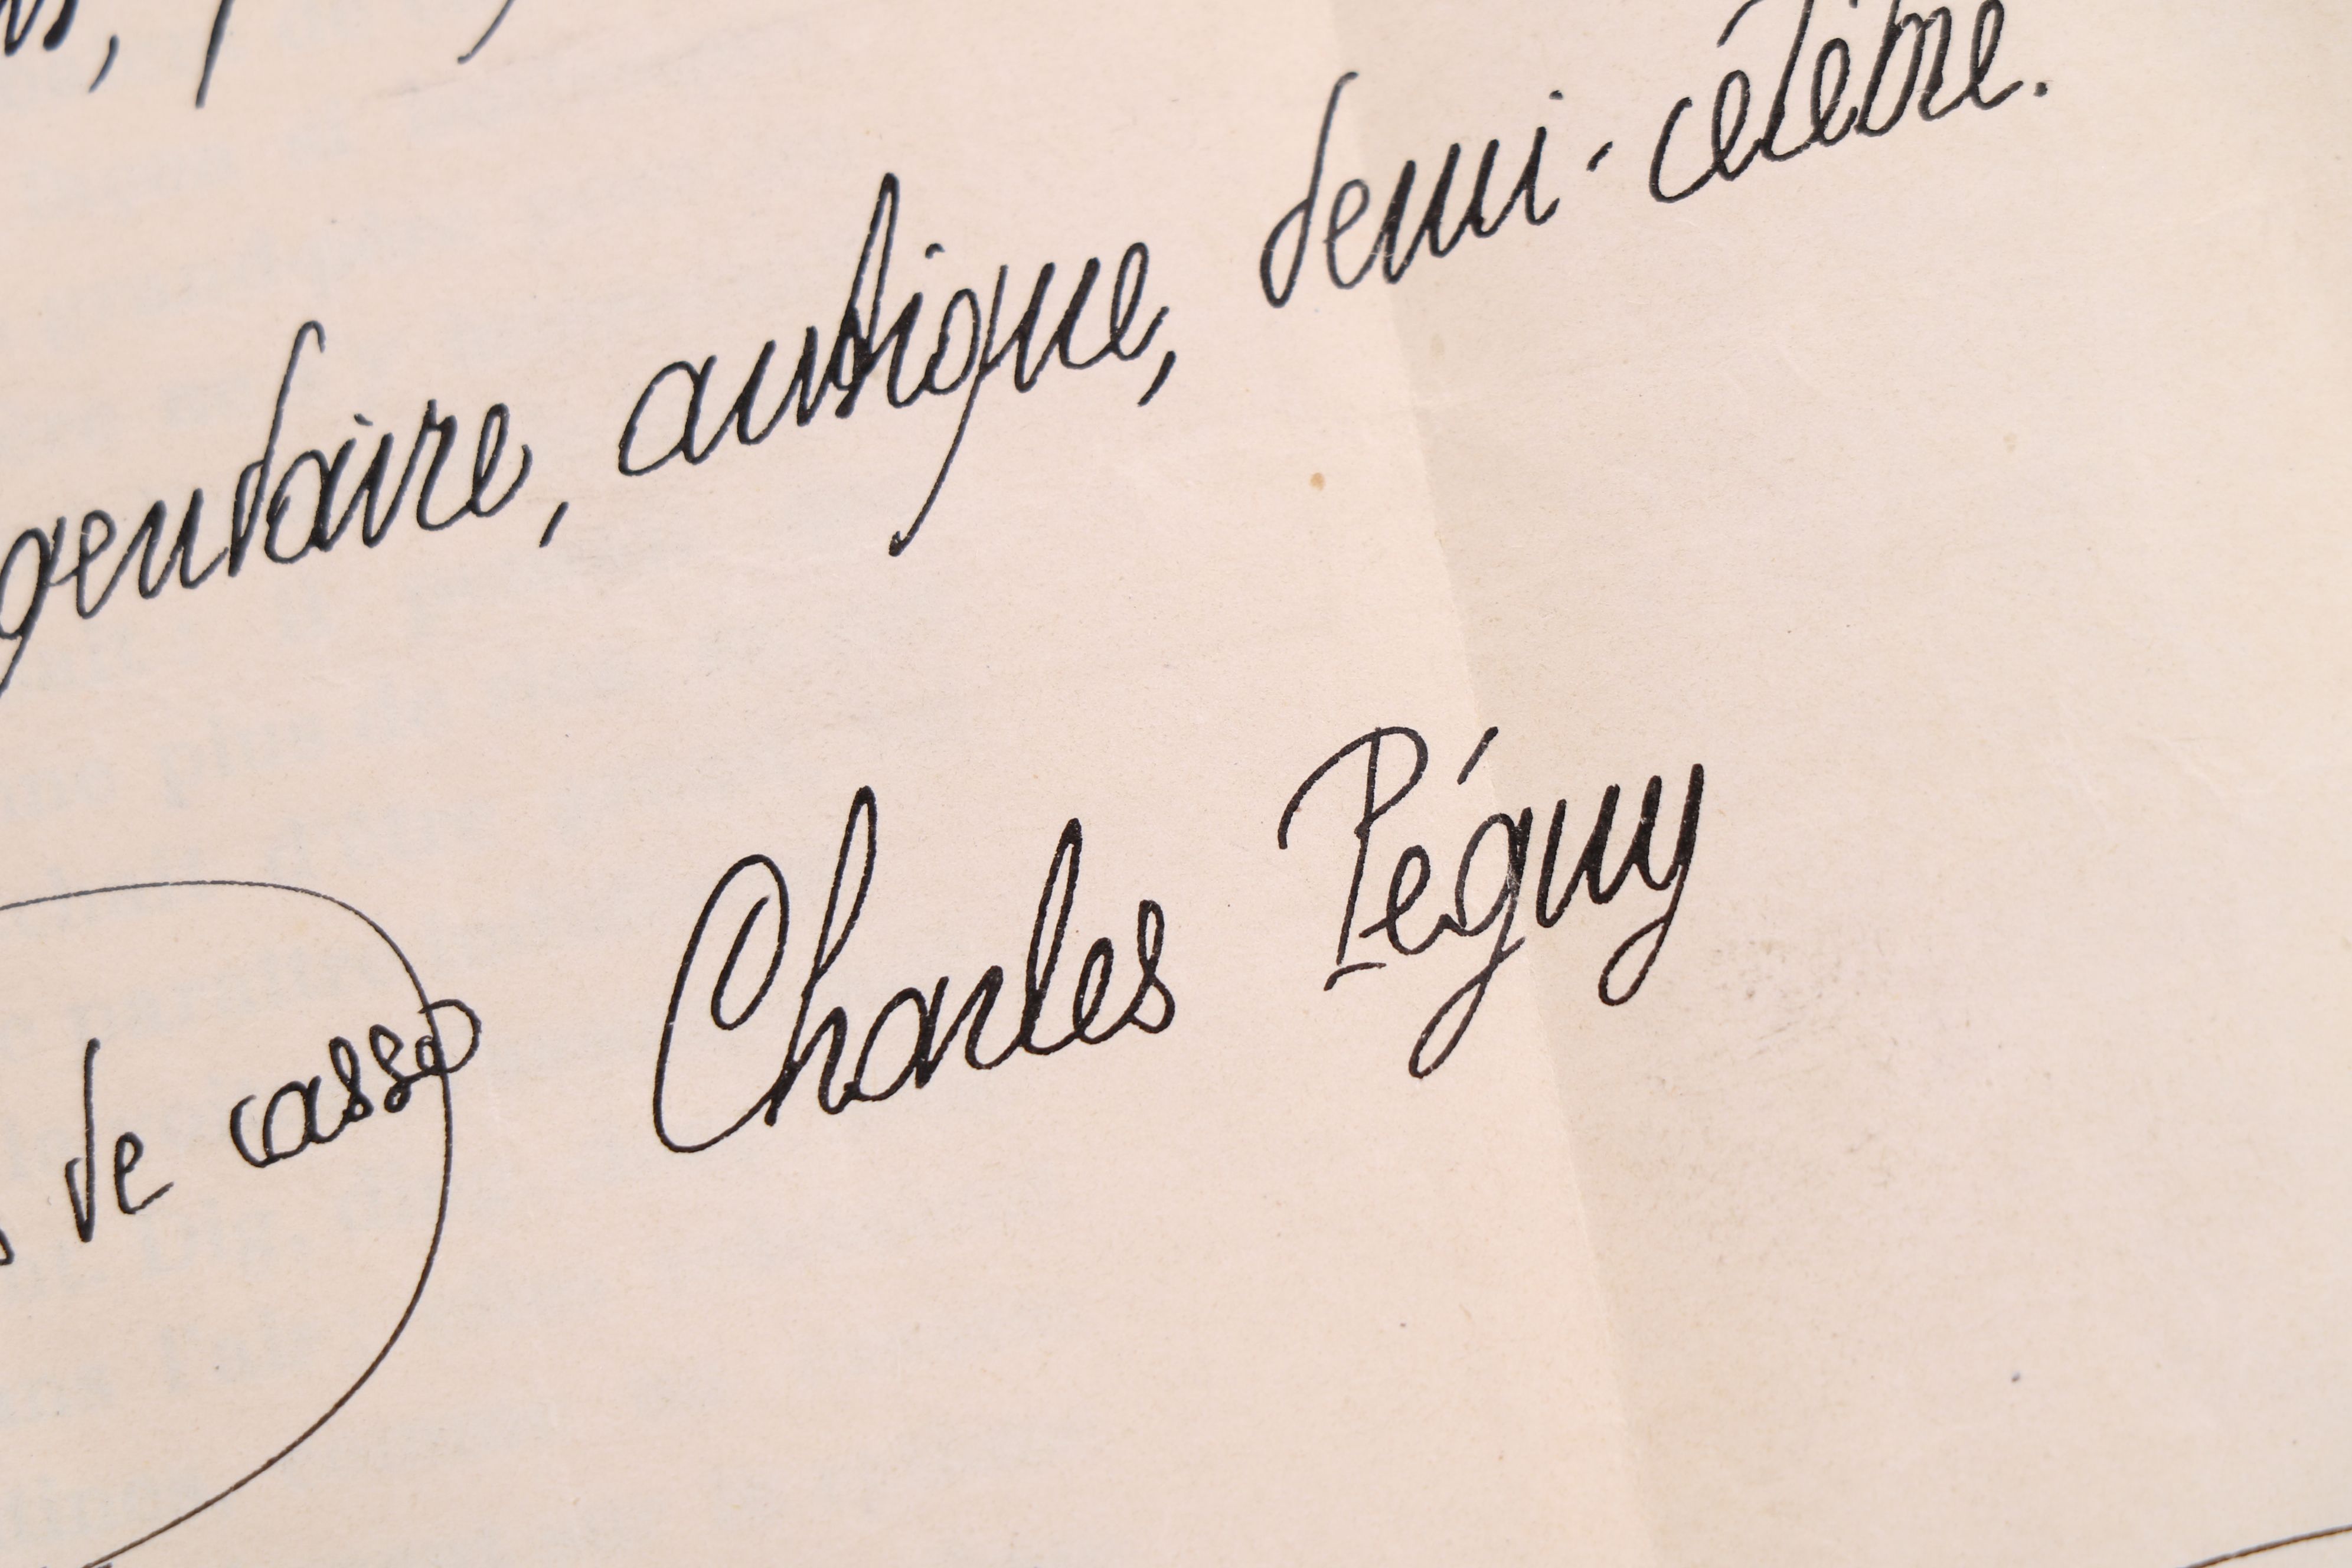 gendaire, antique, demi-célèbre.
Charles Péguy
de casse